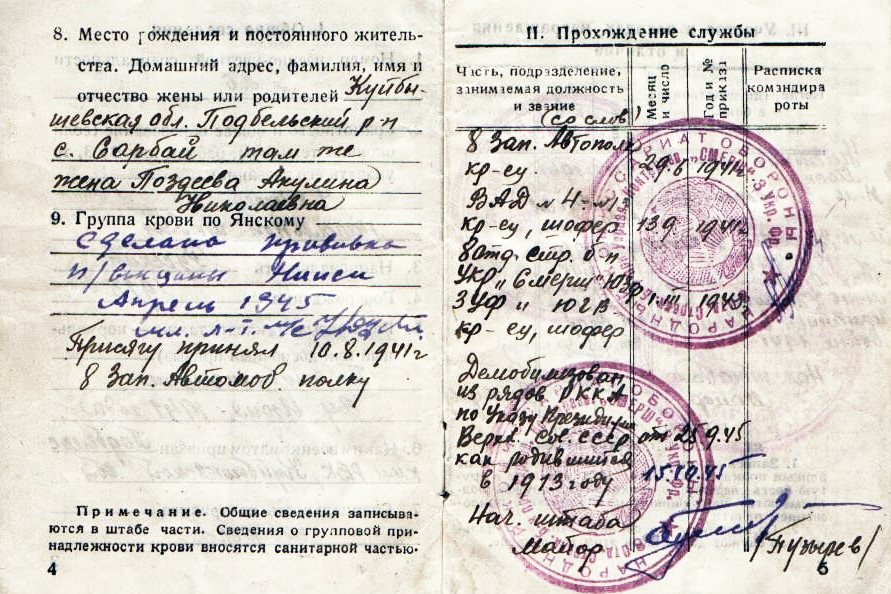 8. Место рождения и постоянного житель-
ства. Домашний адрес, фамилия, имя и
отчество жены или родителей Куйбы-
шевская обл. Подбельский р-н
с. Сарбай там же
жена Поздеева Акулина
Николаевна
9. Группа крови по Янскому
Сделана прививка
п/вакцины
Апрель 1945
Присягу принял 10.8.1941г
8 Зап. Автомоб полку
Примечание. Общие сведения записыва-
ются в штабе части. Сведения о групповой при-
надлежности крови вносятся санитарной частью.
4
II. Прохождение службы
Часть, подразделение,
занимаемая должность
и звание
(со слов)
Месяц
и число
Год и №
приказа
Расписка
командира
роты
8 Зап. Автополк
кр-еу. 29.6 1941г
ВАД №4-
кр-еу, шофер 13.9. 1941г
8 отд. стр. б-н
УКР "Смерш" ЮЗФ
3 УФ " ЮГВ 1.III 1943г
кр-еу, шофер
Демобилизован
из рядов РККА
по Указу Президиума
Верх. Сов. СССР от 25.9.45
как родившийся 15.10.45
в 1913 году
Нач. штаба
Майор /Пузырев/
5
НАРОДНЫЙ КОМИССАРИАТ ОБОРОНЫ
"СМЕРШ" 3 Укр. Фр.